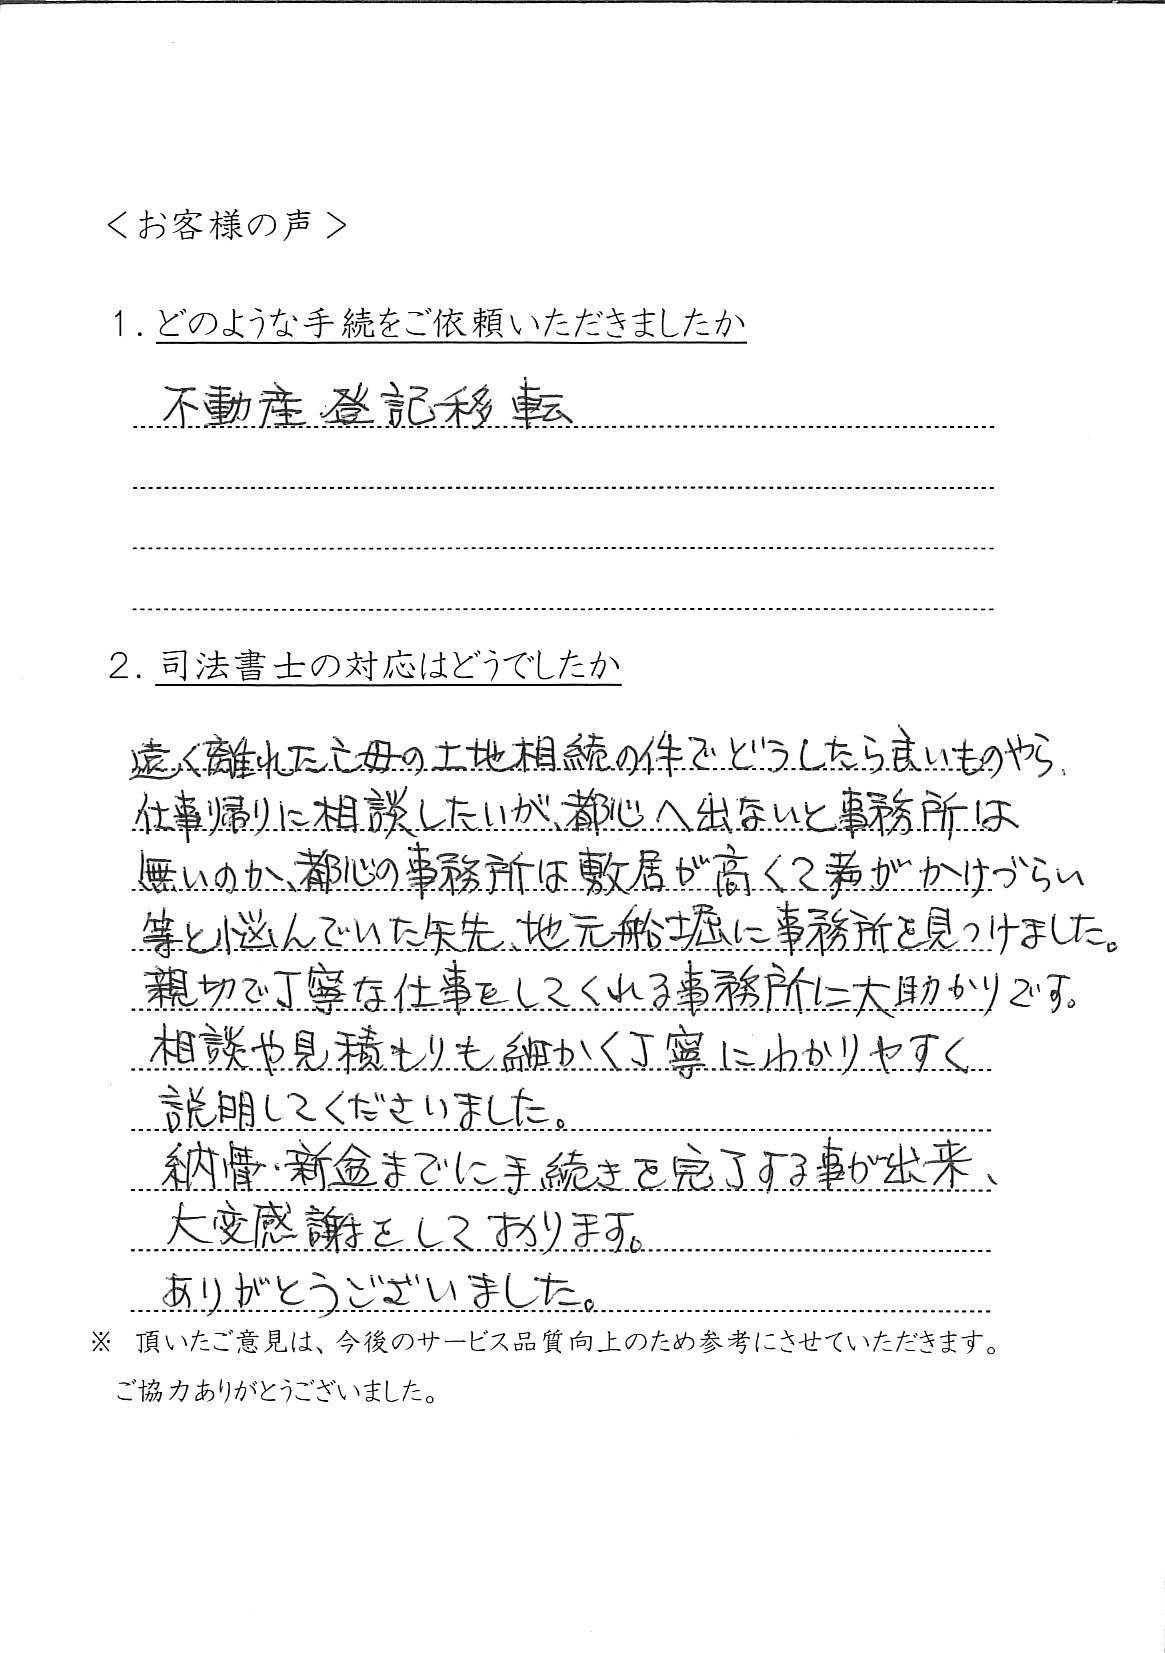 ＜お客様の声＞
１．どのような手続をご依頼いただきましたか
不動産登記移転
２．司法書士の対応はどうでしたか
遠く離れた亡母の土地相続の件でどうしたら良いものやら、
仕事帰りに相談したいが、都心へ出ないと事務所は
無いのか、都心の事務所は敷居が高くて声がかけづらい
等と悩んでいた矢先、地元船堀に事務所を見つけました。
親切で丁寧な仕事をしてくれる事務所に大助かりです。
相談や見積もりも細かく丁寧にわかりやすく
説明してくださいました。
納骨・新盆までに手続きを完了する事が出来、
大変感謝をしております。
ありがとうございました。
※　頂いたご意見は、今後のサービス品質向上のため参考にさせていただきます。
ご協力ありがとうございました。